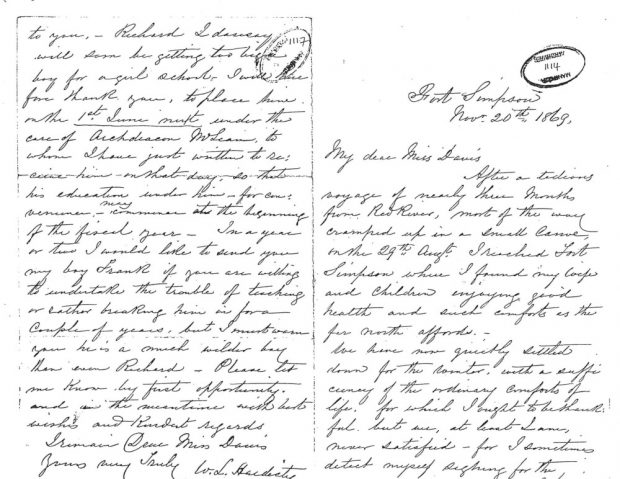 to you, – Richard I daresay
will soon be getting too big a
boy for a girl school – I will there
fore thank you, to place him
on the 1st June next under the
care of Archdeacon McLean, to
whom I have just written to re:
ceive him – on that day, so that
his education under him – for con:
venience – may commence at the beginning
of the fiscal year – In a year
or two I would like to send you
my boy Frank if you are willing
to undertake the trouble of teaching
or rather breaking him in for a
Couple of years, but I must warn
you he is a much wilder boy
than even Richard – Please let
me know by first opportunity.
and in the meantime with best
wishes and Kindest regards
I remain Dear Miss Davis
Yours very Truly W. L. Hardisty
1117
1114
Fort Simpson
Nov. 20th, 1869,
My dear Miss Davis
After a tedious
voyage of nearly three Months
from Red River, most of the way
cramped up in a small Canoe,
on the 29th Augt. I reached Fort
Simpson where I found my wife
and Children enjoying good
health and such comforts as the
far north affords. –
We have now quietly settled
down for the winter. with a suffi
ciency of the ordinary comforts of
life. for which I ought to be thank:
ful. but we, at least I am,
never satisfied – for I sometimes
detect myself sighing for the,